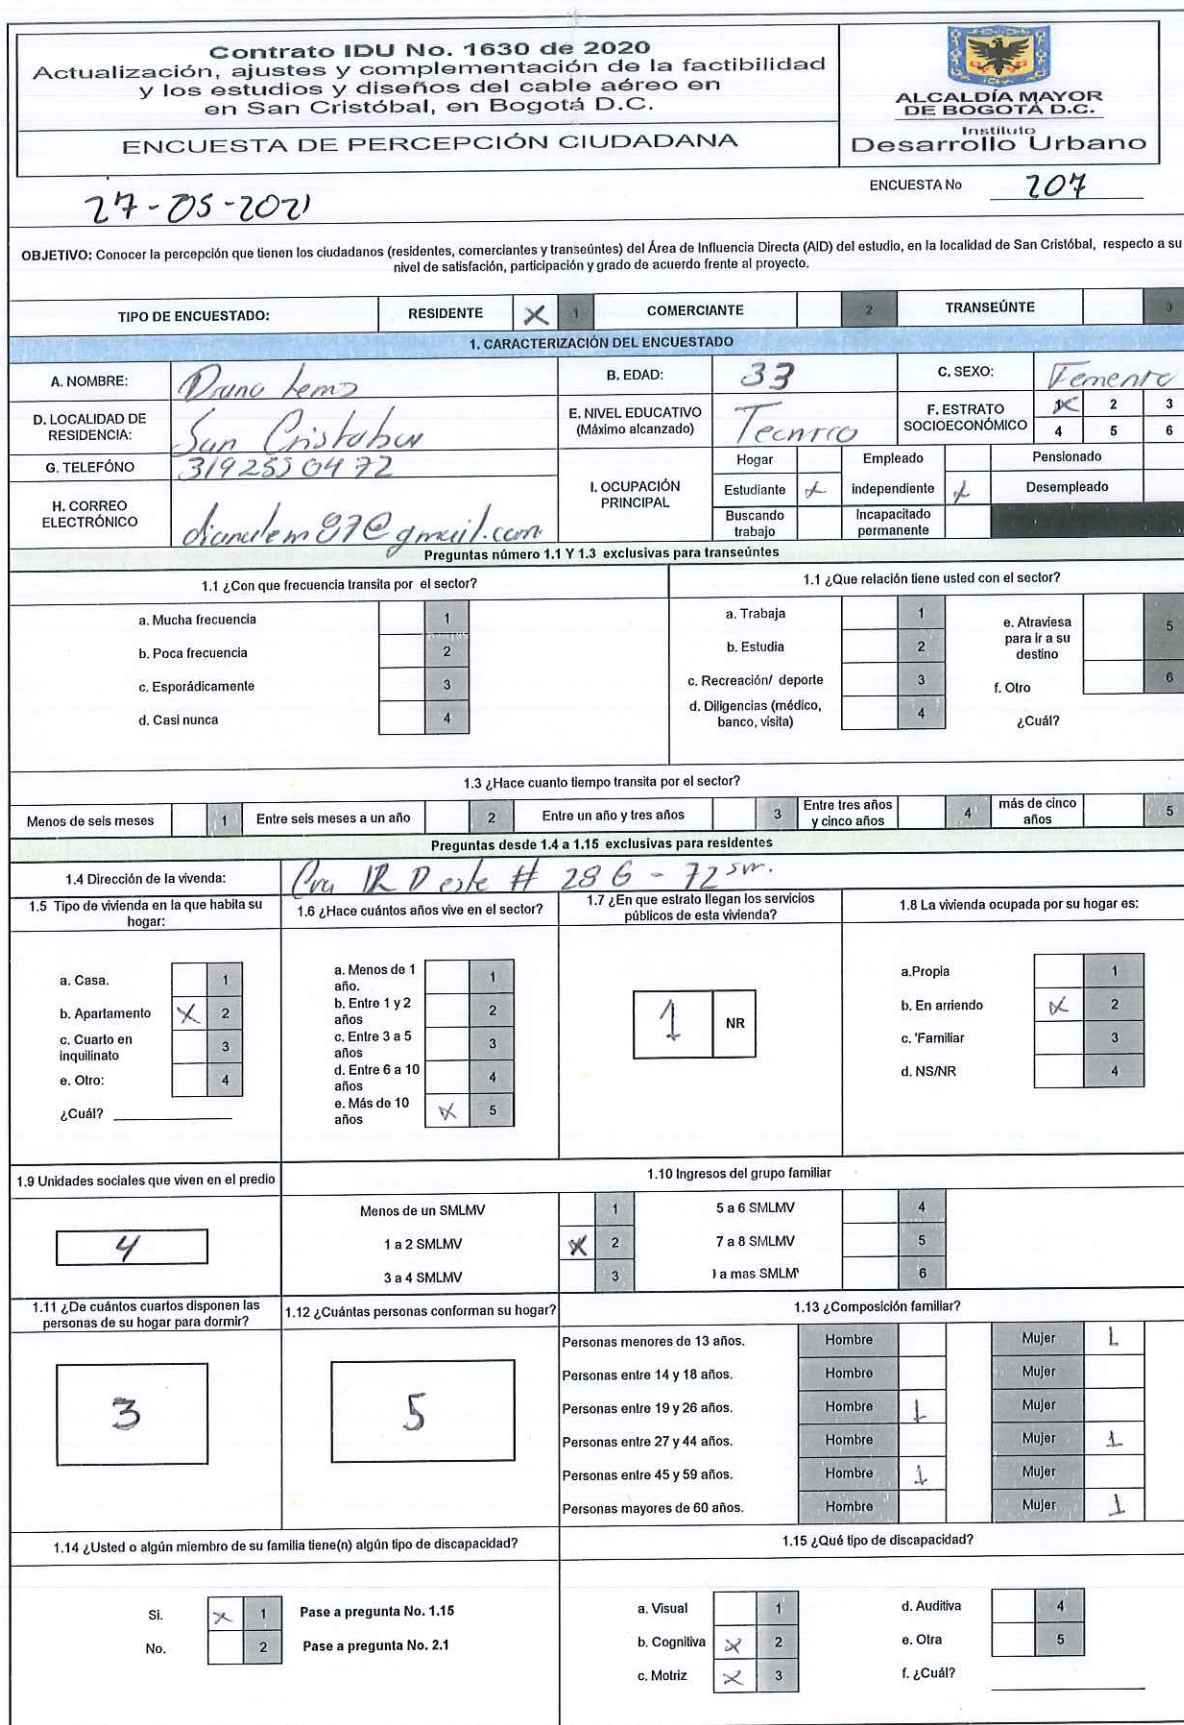 Contrato IDU No. 1630 de 2020
Actualización, ajustes y complementación de la factibilidad
y los estudios y diseños del cable aéreo en
en San Cristóbal, en Bogotá D.C.
ENCUESTA DE PERCEPCIÓN CIUDADANA
ALCALDÍA MAYOR
DE BOGOTÁ D.C.
Instituto
Desarrollo Urbano
27-05-2021
ENCUESTA No 207
OBJETIVO: Conocer la percepción que tienen los ciudadanos (residentes, comerciantes y transeúntes) del Área de Influencia Directa (AID) del estudio, en la localidad de San Cristóbal, respecto a su
nivel de satisfacción, participación y grado de acuerdo frente al proyecto.
TIPO DE ENCUESTADO: RESIDENTE X 1 COMERCIANTE 2 TRANSEÚNTE 3
1. CARACTERIZACIÓN DEL ENCUESTADO
A. NOMBRE: Diana Lemo B. EDAD: 33 C. SEXO: Femenio
D. LOCALIDAD DE RESIDENCIA: San Cristobal
E. NIVEL EDUCATIVO (Máximo alcanzado) Tecnico
F. ESTRATO SOCIOECONÓMICO X 2 3
4 5 6
G. TELEFÓNO 3192550472
H. CORREO ELECTRÓNICO dianalem87@gmail.com
I. OCUPACIÓN PRINCIPAL
Hogar Empleado Pensionado
Estudiante X independiente X Desempleado
Buscando trabajo Incapacitado permanente
Preguntas número 1.1 Y 1.3 exclusivas para transeúntes
1.1 ¿Con que frecuencia transita por el sector?
a. Mucha frecuencia 1
b. Poca frecuencia 2
c. Esporádicamente 3
d. Casi nunca 4
1.1 ¿Que relación tiene usted con el sector?
a. Trabaja 1
b. Estudia 2
c. Recreación/ deporte 3
d. Diligencias (médico, banco, visita) 4
e. Atraviesa para ir a su destino 5
f. Otro 6
¿Cuál?
1.3 ¿Hace cuanto tiempo transita por el sector?
Menos de seis meses 1 Entre seis meses a un año 2 Entre un año y tres años 3 Entre tres años y cinco años 4 más de cinco años 5
Preguntas desde 1.4 a 1.15 exclusivas para residentes
1.4 Dirección de la vivenda: Cra 12 D este # 28 G - 72 sur.
1.5 Tipo de vivienda en la que habita su hogar:
a. Casa. 1
b. Apartamento X 2
c. Cuarto en inquilinato 3
e. Otro: 4
¿Cuál?
1.6 ¿Hace cuántos años vive en el sector?
a. Menos de 1 año. 1
b. Entre 1 y 2 años 2
c. Entre 3 a 5 años 3
d. Entre 6 a 10 años 4
e. Más de 10 años X 5
1.7 ¿En que estrato llegan los servicios públicos de esta vivienda?
1 NR
1.8 La vivienda ocupada por su hogar es:
a.Propia 1
b. En arriendo X 2
c. 'Familiar 3
d. NS/NR 4
1.9 Unidades sociales que viven en el predio
4
1.10 Ingresos del grupo familiar
Menos de un SMLMV 1 5 a 6 SMLMV 4
1 a 2 SMLMV X 2 7 a 8 SMLMV 5
3 a 4 SMLMV 3 a mas SMLM 6
1.11 ¿De cuántos cuartos disponen las personas de su hogar para dormir?
3
1.12 ¿Cuántas personas conforman su hogar?
5
1.13 ¿Composición familiar?
Personas menores de 13 años. Hombre Mujer 1
Personas entre 14 y 18 años. Hombre Mujer
Personas entre 19 y 26 años. Hombre 1 Mujer
Personas entre 27 y 44 años. Hombre Mujer 1
Personas entre 45 y 59 años. Hombre 1 Mujer
Personas mayores de 60 años. Hombre Mujer 1
1.14 ¿Usted o algún miembro de su familia tiene(n) algún tipo de discapacidad?
Si. X 1 Pase a pregunta No. 1.15
No. 2 Pase a pregunta No. 2.1
1.15 ¿Qué tipo de discapacidad?
a. Visual 1 d. Auditiva 4
b. Cognitiva X 2 e. Otra 5
c. Motriz X 3 f. ¿Cuál?